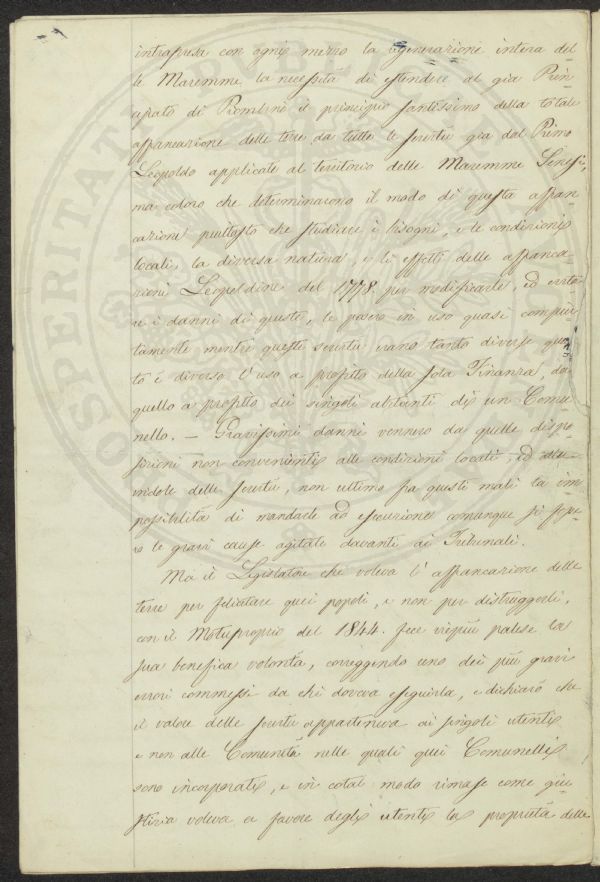 intrapresa con ogni mezzo la rigenerazione intera del
le Maremme la necessità di estendere al già Prin
cipato di Piombino il principio santissimo della totale
affrancazione delle terre da tutte le servitù già dal Primo
Leopoldo applicate al territorio delle Maremme Senesi,
ma coloro che determinarono il modo di questa affran
cazione piuttosto che studiare i bisogni, e le condizioni
locali, la diversa natura, e li effetti delle affranca
zioni Leopoldine del 1778. per modificarle, ed evita
re i danni di queste, le posero in uso quasi comple
tamente mentre queste servitù erano tanto diverse quan
to è diverso l'uso a profitto della sola Finanza, da
quello a profitto dei singoli abitanti di un Comu
nello. — Gravissimi danni vennero da quelle dispo
sizioni non convenienti alle condizioni locali, ed
indole delle servitù, non ultimo fra questi mali la im
possibilità di mandarle ad esecuzione comunque si sope
ro le gravi cause agitate davanti ai Tribunali.
Ma il Legislatore che voleva l'affrancazione delle
terre per felicitare quei popoli, e non per distruggerli,
con il Motuproprio del 1844. fece viepiù palese la
sua benefica volontà, correggendo uno dei più gravi
errori commessi da chi doveva eseguirla, e dichiarò che
il valore delle servitù apparteneva ai singoli utenti
e non alle Comunità nelle quali quei Comunelli
sono incorporati, e in cotal modo rimase come giu
stizia voleva a favore degli utenti la proprietà delle